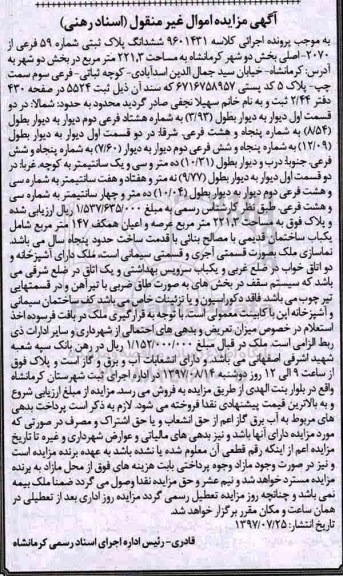 آگهی مزایده اموال غیر منقول (اسناد رهنی)
به موجب پرونده اجرائی کلاسه ۹۶۰۱۴۳۱ ششدانگ پلاک ثبتی شماره ۵۹ فرعی از
۲۰۷۰- اصلی بخش دو شهر کرمانشاه به مساحت ۲۲۱,۳ متر مربع در بخش دو شهر به
آدرس: کرمانشاه- خیابان سید جمال الدین اسدآبادی- کوچه ثباتی- فرعی سوم سمت
چپ- پلاک ۵ کد پستی ۶۷۱۶۷۵۸۹۵۷ که سند آن ذیل ثبت ۵۵۲۴ در صفحه ۴۳۰
دفتر ۲/۴۴ ثبت و به نام خانم سهیلا نجفی صادر گردید محدود به حدود: شمالا: در دو
قسمت اول دیوار به دیوار بطول (۳/۹۳) به شماره هشتاد فرعی دوم دیوار به دیوار بطول
(۸/۵۴) به شماره پنجاه و هشت فرعی. شرقا: در دو قسمت اول دیوار به دیوار بطول
(۱۲/۰۹) به شماره پنجاه و شش فرعی دوم دیوار به دیوار (۷/۶۰) به شماره پنجاه و شش
فرعی. جنوبا: درب و دیوار بطول (۱۰/۳۱) ده متر و سی و یک سانتیمتر به کوچه. غربا: در
دو قسمت اول دیوار به دیوار بطول (۹/۷۷) نه متر و هفتاد و هفت سانتیمتر به شماره سی
و هشت فرعی دوم دیوار به دیوار بطول (۱۰/۰۴) ده متر و چهار سانتیمتر به شماره سی
و هشت فرعی. طبق نظر کارشناس رسمی به مبلغ ۱/۵۳۷/۶۳۵/۰۰۰ ریال ارزیابی شده
و پلاک فوق به مساحت ۲۲۱,۳ متر مربع عرصه و اعیان همکف ۱۴۷ متر مربع شامل
یکباب ساختمان قدیمی با مصالح بنائی با قدمت ساخت حدود پنجاه سال می باشد.
نماسازی ملک بصورت قسمتی آجری و قسمتی سیمانی است، ملک دارای آشپزخانه و
دو اتاق خواب در ضلع غربی و یکباب سرویس بهداشتی و یک اتاق در ضلع شرقی می
باشد که سیستم سقف در بخش های به صورت طاق ضربی با تیرآهن و در قسمتهایی
تیر چوب می باشد. فاقد دکوراسیون و یا تزئینات خاص می باشد کف ساختمان سیمانی
و آشپزخانه اپن با کابینت معمولی است. با توجه به قرارگیری ملک در بافت فرسوده اخذ
استعلام در خصوص میزان تعریض و بدهی های احتمالی از شهرداری و سایر ادارات ذی
ربط الزامی است. ملک در قبال مبلغ ۱/۱۵۲/۰۰۰/۰۰۰ ریال در رهن بانک سپه شعبه
شهید اشرفی اصفهانی می باشد و دارای انشعابات آب و برق و گاز است و پلاک فوق
از ساعت ۹ الی ۱۲ روز دوشنبه ۱۳۹۷/۰۸/۱۴ در اداره اجرای ثبت شهرستان کرمانشاه
واقع در بلوار بنت الهدی از طریق مزایده به فروش می رسد. مزایده از مبلغ ارزیابی شروع
و به بالاترین قیمت پیشنهادی نقدا فروخته می شود. لازم به ذکر است پرداخت بدهی
های مربوط به آب برق گاز اعم از حق انشعاب و یا حق اشتراک و مصرف در صورتی که
مورد مزایده دارای آنها باشد و نیز بدهی های مالیاتی و عوارض شهرداری و غیره تا تاریخ
مزایده اعم از اینکه رقم قطعی آن معلوم شده یا نشده باشد به عهده برنده مزایده است
و نیز در صورت وجود مازاد وجوه پرداختی بابت هزینه های فوق از محل مازاد به برنده
مزایده مسترد خواهد شد و نیم عشر و حق مزایده نقدا وصول می گردد ضمنا ملک بیمه
نمی باشد و چنانچه روز مزایده تعطیل رسمی گردد مزایده روز اداری بعد از تعطیلی در
همان ساعت و مکان مقرر برگزار خواهد شد.
تاریخ انتشار: ۱۳۹۷/۰۷/۲۵
قادری- رئیس اداره اجرای اسناد رسمی کرمانشاه